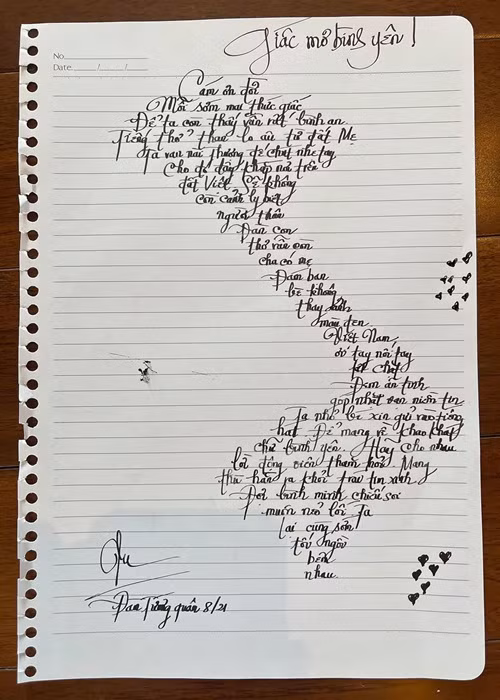 Giấc mơ bình yên!
No.
Date / /
Cám ơn đời
Mỗi sớm mai thức giấc
Để ta còn thấy vẫn rất bình an
Tiếng thở than lo âu từ đất Mẹ
Ta van nài thượng đế chút nhẹ tay
Cho đó đây khắp nơi trên
đất Việt Sẽ không
còn cảnh ly biệt
người thân
Đàn con
thơ vẫn còn
cha có mẹ
Đám bạn
bè không
thay ảnh
màu đen.
Việt Nam,
ơi tay nối tay
kết chặt
Đem ân tình
góp nhặt vạn niềm tin
Ta nhỏ bé xin gửi vào tiếng
hát Để mang về khao khát
chữ bình yên. Hãy cho nhau
lời động viên thăm hỏi Mang
thù hằn ra khỏi trái tim xanh
Đợi bình minh chiếu soi
muôn nẻo lối Ta
lại cùng sớm
tối ngồi
bên
nhau.
Đan Trường quân 8/21